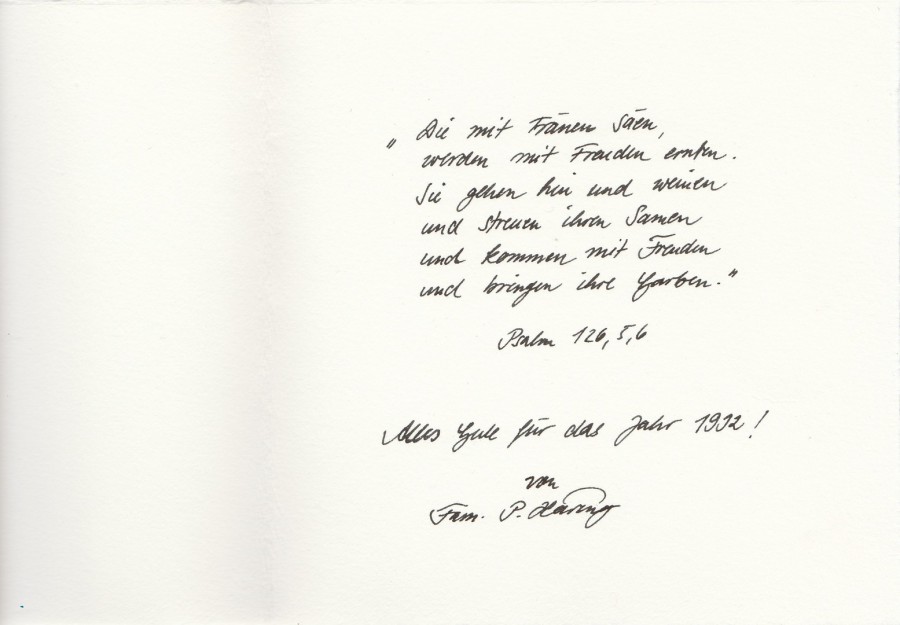 „Die mit Tränen säen,
werden mit Freuden ernten.
Sie gehen hin und weinen
und streuen ihren Samen
und kommen mit Freuden
und bringen ihre Garben."
Psalm 126,5,6
Alles Gute für das Jahr 1992!
von
Fam. P.